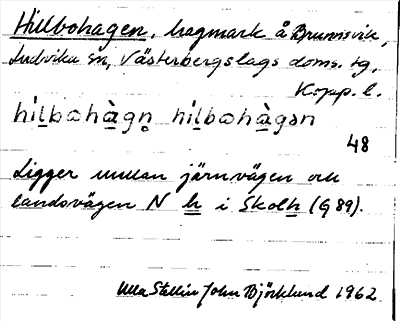 Hillbohagen, hagmark å Brunnsvik,
Ludvika sn, Västerbergslags doms. tg,
Kopp. l.
hìl̲bωhà̲gn̥ hìl̲bωhà̲gən
48
Ligger mellan järnvägen och
landsvägen N h i Skolh (G 89).
Ulla Stellin John Björklund 1962